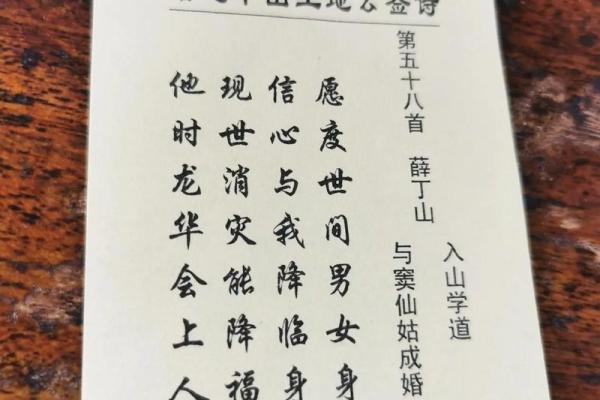 山土地公签诗
第五十八首 薛丁山
入山学道
与窦仙姑成婚
愿度世间男女身
信心与我降临身
现世消灾能降福
他时龙华会上人